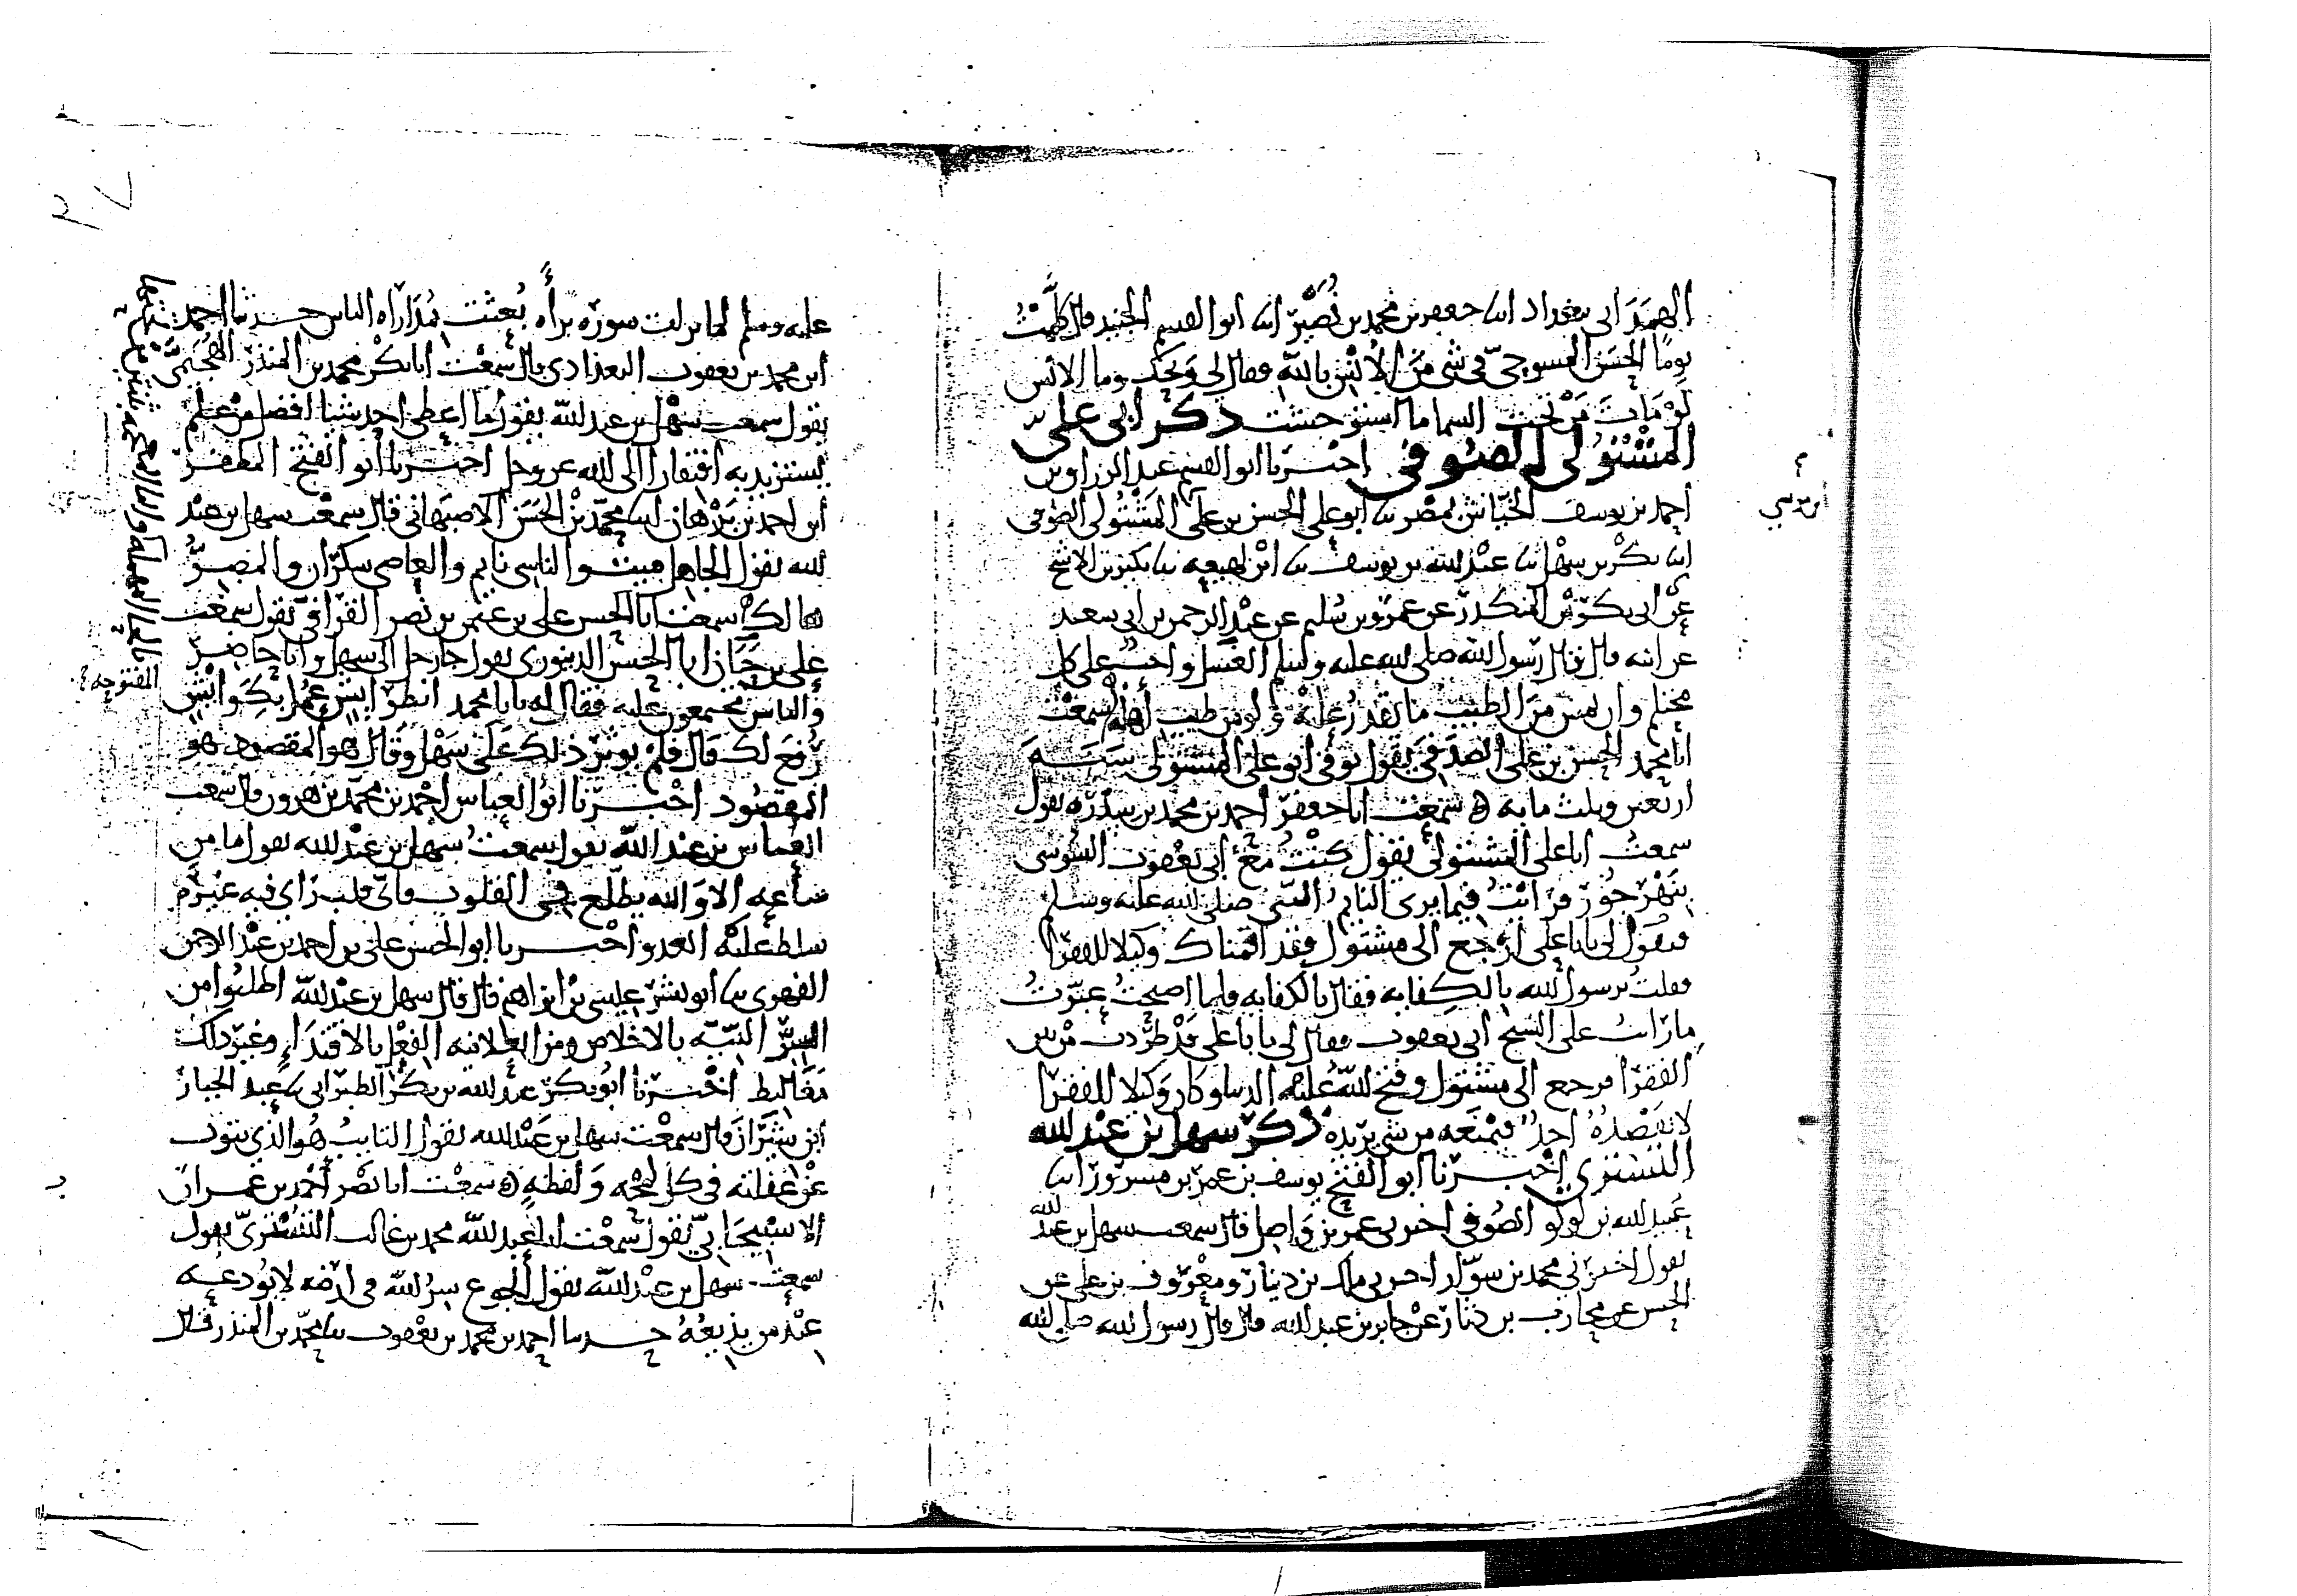 الهمداني ببغداد انا جعفر بن محمد بن نصير انا ابو القسم الجنيد قال كلمت
يوما الحسن المسوحي في شي من الانس بالله فقال لي ويحك وما الانس
لو مات من تحت السما ما استوحشت ذكر ابي علي
المشتولي الصوفي اخبرنا ابو القسم عبد الرزاق بن
احمد بن يوسف الخياش بمصر نا ابو علي الحسن بن علي المشتولي الصوفي
انا بكر بن سهل نا عبد الله بن يوسف نا ابن لهيعه نا بكير بن الاشج
عن ابي بكر بن المنكدر عن عمرو بن سليم عن عبد الرحمن بن ابي سعيد
عن ابيه قال قال رسول الله صلى الله عليه وسلم الغسل واجب على كل
محتلم وان يمس من الطيب ما يقدر عليه ولو من طيب اهله سمعت
ابا محمد الحسن بن علي الصدفي يقول توفي ابو علي المشتولي سنه
اربعين وثلث مايه سمعت ابا جعفر احمد بن محمد بن سدره يقول
سمعت ابا علي المشتولي يقول كنت مع ابي يعقوب السوسي
بنهر جور فرايت فيما يرى النايم النبي صلى الله عليه وسلم
فيقول لي يابا علي ارجع الى مشتول فقد اقمناك وكيلا للفقرا
فقلت يرسول الله بالكفايه فقال بالكفايه فلما اصبحت عبرت
ما رايت على الشيخ ابي يعقوب فقال لي يابا علي قد طردت من بين
الفقرا فرجع الى مشتول وفتح الله عليه الدنيا وكان وكيلا للفقرا
لا يقصده احد فيمنعه من شي يريده ذكر سهل بن عبد الله
التستري اخبرنا ابو الفتح يوسف بن عمر بن مسرور انا
عبيد الله بن لولو الصوفي اخبرني عمر بن واصل قال سمعت سهل بن عبد الله
يقول اخبرني محمد بن سوار اخبرني ملك بن دينار ومعروف بن علي عن
الحسن عن محارب بن دثار عن جابر بن عبد الله قال قال رسول الله صلى الله
عليه وسلم لما نزلت سوره براه بعثت بمداراه الناس حدثنا احمد
ابن محمد بن يعقوب البغدادي قال سمعت ابا بكر محمد بن المنذر الهجيمي
يقول سمعت سهل بن عبد الله يقول ما اعطي احد شيا افضل من علم
يستزيد به افتقارا الى الله عز وجل اخبرنا ابو الفتح المظفر
ابن احمد بن برهان نا محمد بن الحسن الاصبهاني قال سمعت سهل بن عبد
الله يقول الجاهل ميت والناسي نايم والعاصي سكران والمصر
هالك سمعت ابا الحسن علي بن عثمن بن نصر القرافي يقول سمعت
علي بن حيان ابا الحسن الدينوري يقول جا رجل الى سهل وانا حاضر
والناس مجتمعون عليه فقال له يابا محمد انظر ايش عمل بك وايش
رفع لك قال فلم يوثر ذلك على سهل وقال هو المقصود هو
المقصود اخبرنا ابو العباس احمد بن محمد بن هرون قال سمعت
العباس بن عبد الله يقول سمعت سهل بن عبد الله يقول ما من
ساعه الا والله يطلع في القلوب فاي قلب راى فيه غيره
سلط عليه العدو اخبرنا ابو الحسن علي بن احمد بن عبد الرحمن
الفهري نا ابو بشر عيسى بن ابراهيم قال قال سهل بن عبد الله اطلبوا من
السر النيه بالاخلاص ومن العلانيه الفعل بالاقتدا وغير ذلك
مغاليط اخبرنا ابو بكر عبد الله بن بكر الطبراني نا عبد الجبار
ابن شيراز قال سمعت سهل بن عبد الله يقول التايب هو الذي يتوب
عن غفلته في كل لمحه ولفظه سمعت ابا نصر احمد بن عمران
الاسبيجابي يقول سمعت ابا عبد الله محمد بن غالب التستري يقول
سمعت سهل بن عبد الله يقول الجوع سر الله في ارضه لا يودعه
عند من يذيعه حدثنا احمد بن محمد بن يعقوب نا محمد بن المنذر قال
المفتوحه